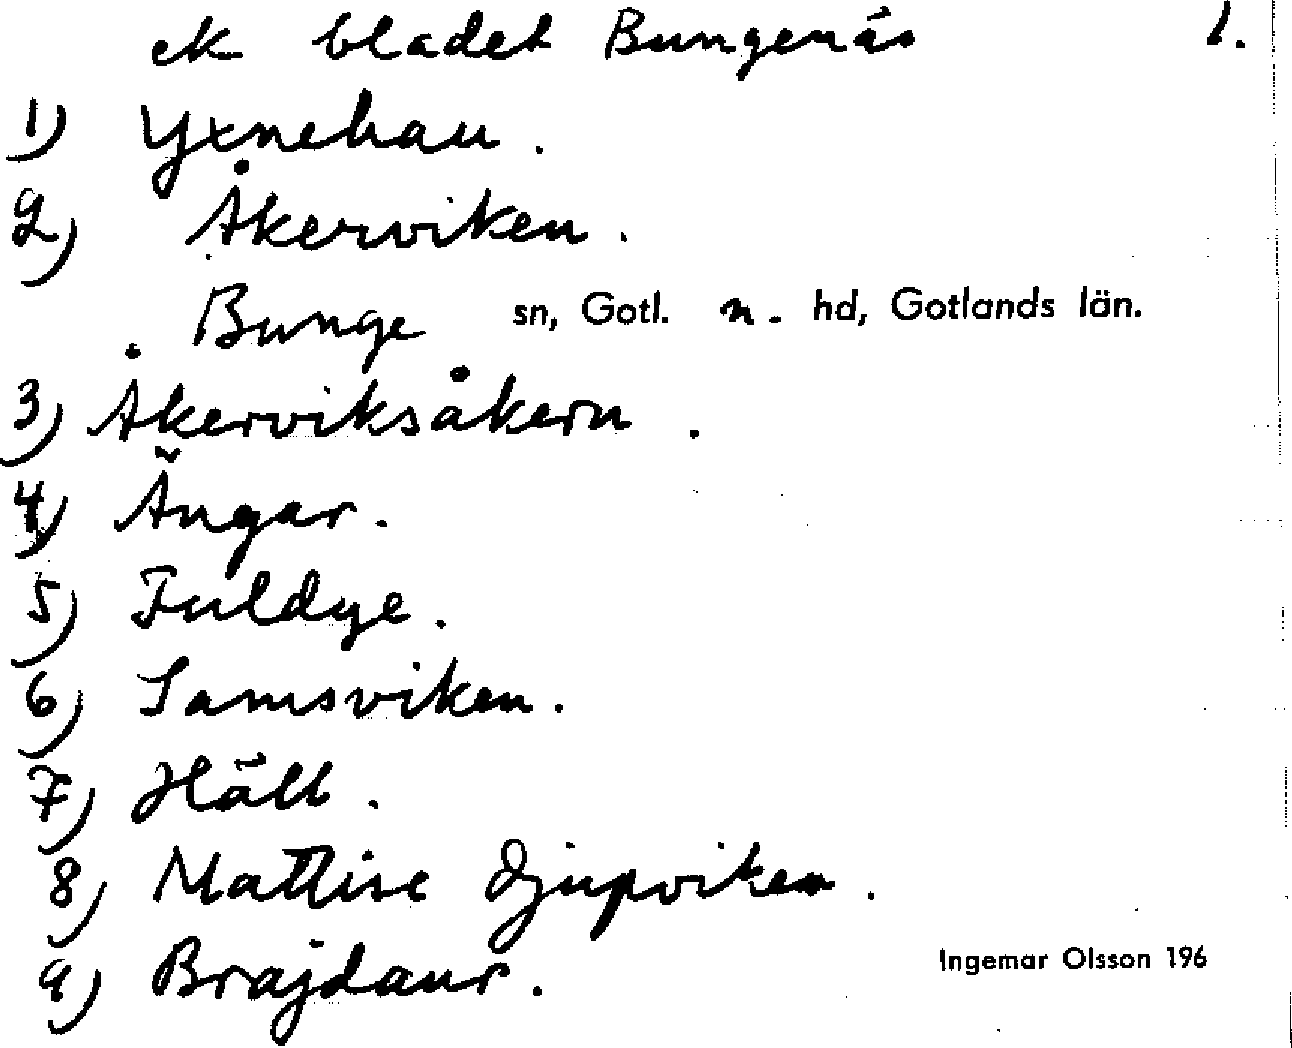 ek bladet Bungenäs 1.
1) Yxnehau.
2) Åkerviken.
Bunge sn, Gotl. n. hd, Gotlands län.
3) Åkerviksåkern.
4) Ängar.
5) Fuldye.
6) Samsviken.
7) Häll.
8) Mattise Djupviken.
9) Brajdaur.
Ingemar Olsson 196